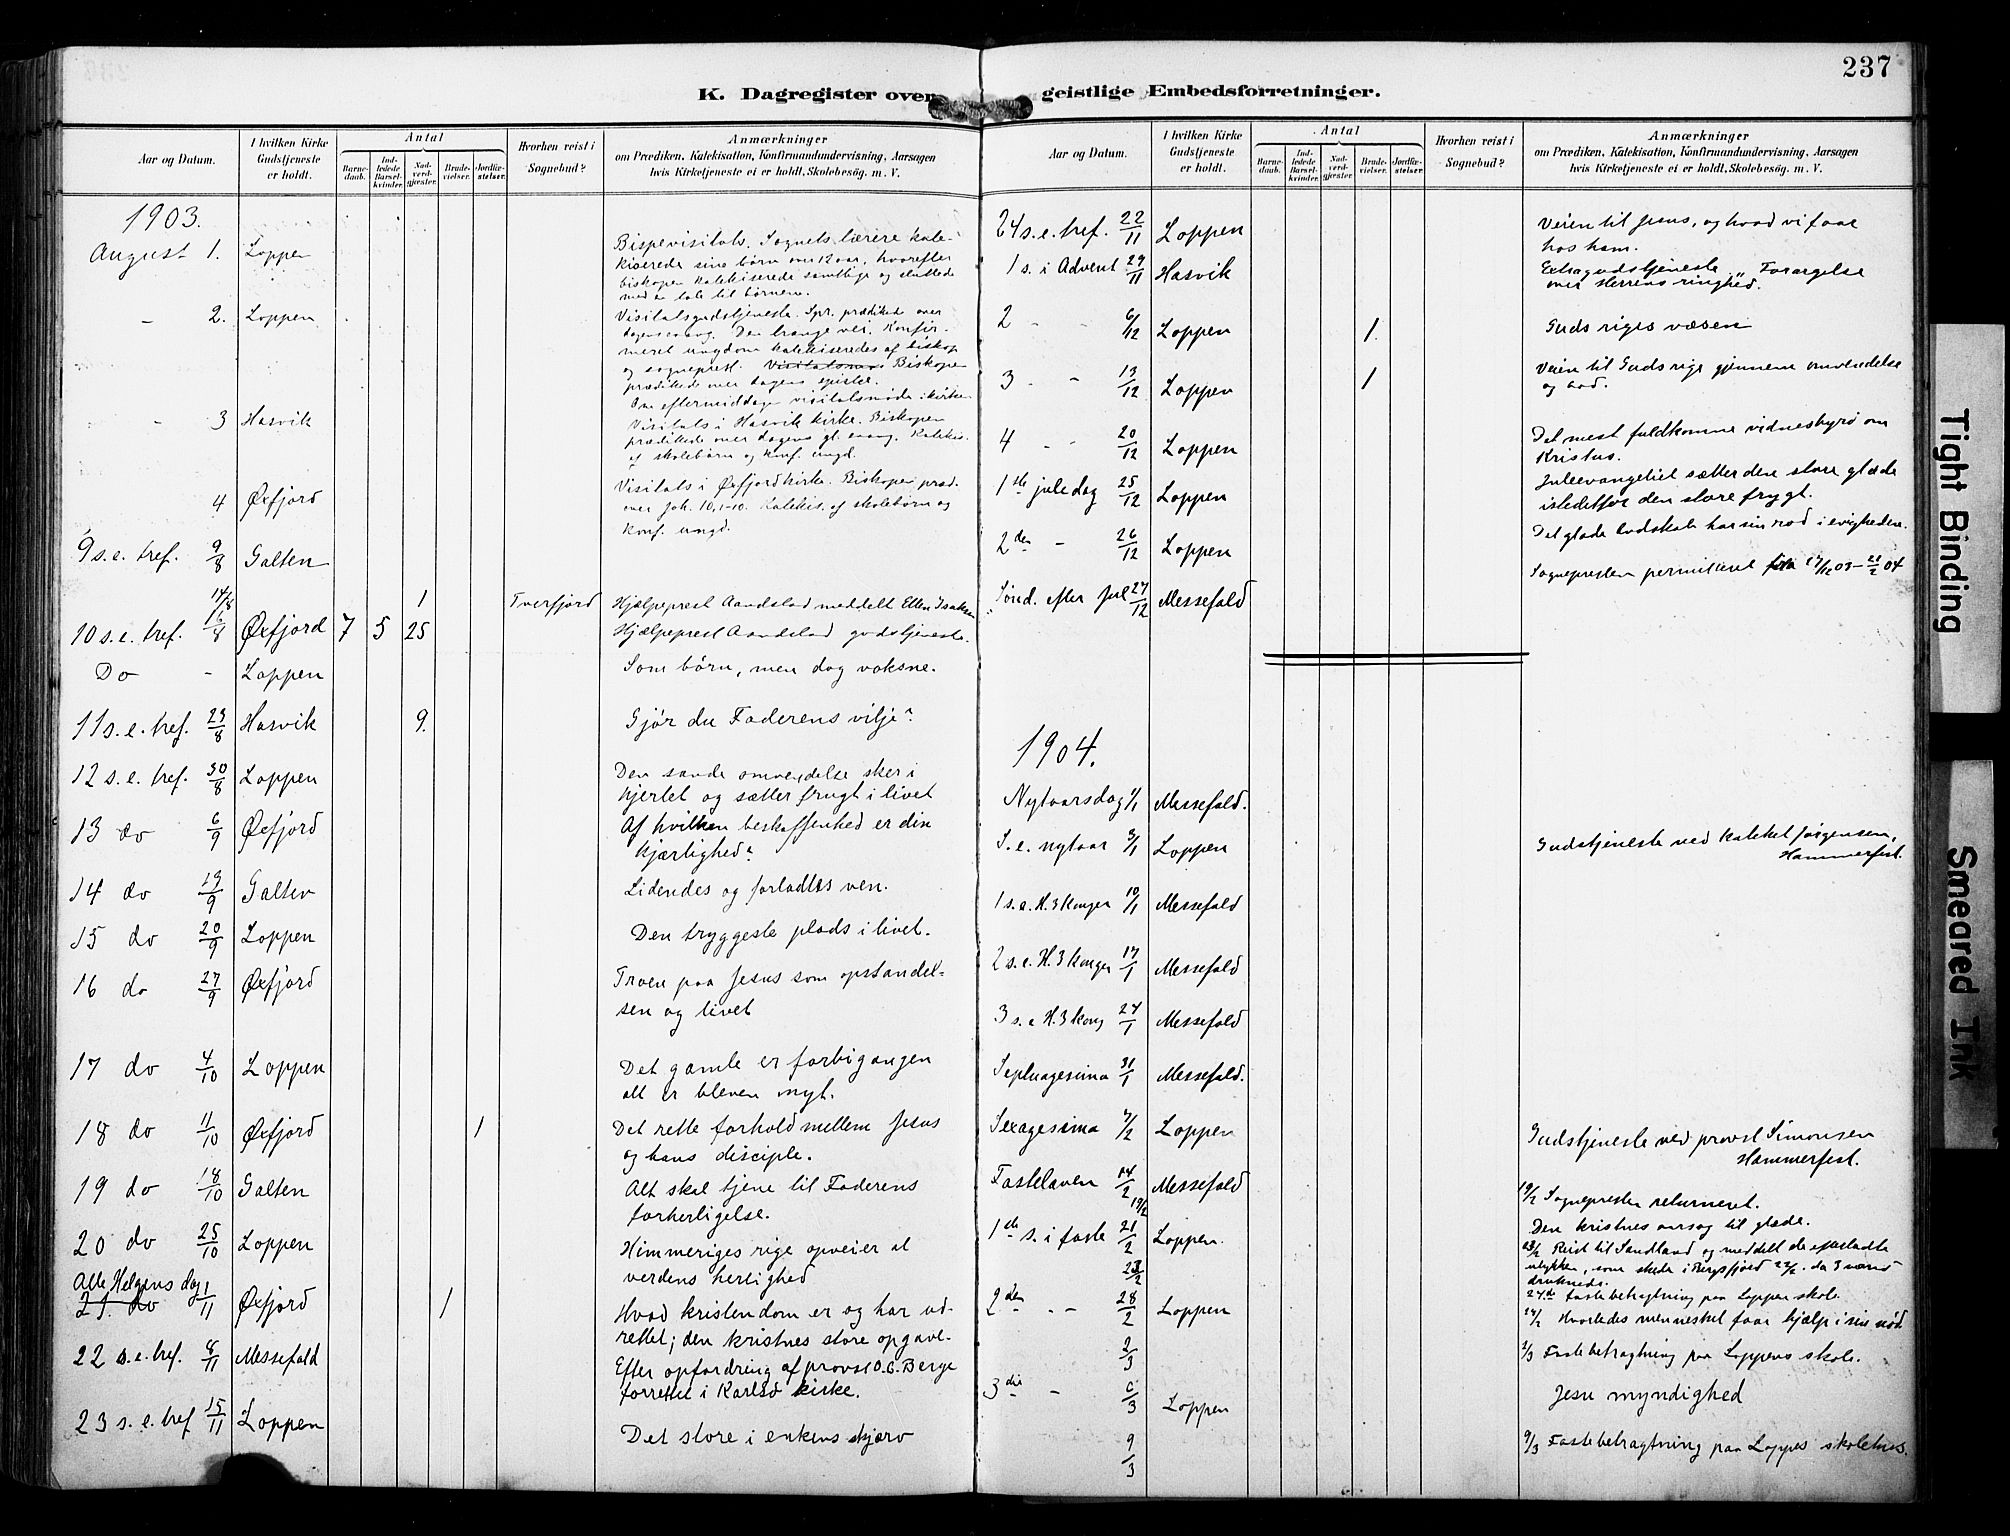 237
K. Dagregister over geistlige Embedsforretninger.
Aar og Datum.
I hvilken Kirke Gudstjeneste er holdt.
Antal
Barne-daab.
Ind-ledede Barsel-kvinder.
Nad-verd-gjester.
Brude-vielser.
Jordfæ-stelser.
Hvorhen reist i Sognebud?
Anmærkninger
om Prædiken, Katekisation, Konfirmandundervisning, Aarsagen
hvis Kirketjeneste ei er holdt, Skolebesøg. m. V.
1903.
August 1. Loppen Bispevisitats. Sognets lærere kate-
kiserede sine børn over 12 aar, hvorefter
biskopen katekiserede samtlige og sluttede
med en tale til børnene.
- 2. Loppen Visitatsgudstjeneste. Spr. prædiked over
dagens evang. Den trange vei. Konfir-
meret ungdom katekiseredes af biskop
og sogneprest. Biskopen
prædikede over dagens epistel.
Om eftermiddagen visitatsmøde i kirken
- 3 Hasvik Visitats i Hasvik kirke. Biskopen
prædikede over dagens gl. evang. Katekis.
af skolebørn og konf. ungd.
4 Øxfjord Visitats i Øxfjord kirke. Biskopen præd.
over Joh. 10, 1-10. Katekis. af skolebørn og
konf. ungd.
9 s. e. tref. 9/8 Galten
14/8 1 Tverfjord Hjælpeprest Aandstad meddelt Ellen Isaksen
10 s. e. tref. 16/8 Øxfjord 7 5 25 Hjælpeprest Aandstad gudstjeneste.
Do - Loppen Som børn, men dog voksne.
11 s. e. tref. 23/8 Hasvik 9. Gjør du Faderens vilje?
12 s. e. tref. 30/8 Loppen Den sande omvendelse sker i
hjertet og sætter frugt i livet
13 do 6/9 Øxfjord Af hvilken beskaffenhed er din
kjærlighed?
14 do 13/9 Galten Lidendes og forladtes ven.
15 do 20/9 Loppen Den tryggeste plads i livet.
16 do 27/9 Øxfjord Troen paa Jesus som opstandel-
sen og livet
17 do 4/10 Loppen Det gamle er forbigangen
alt er bleven nyt.
18 do 11/10 Øxfjord 1 Det rette forhold mellem Jesus
og hans disciple.
19 do 18/10 Galten Alt skal tjene til Faderens
forherligelse.
20 do 25/10 Loppen Himmeriges rige opveier al
verdens herlighed
Alle Helgens dag
21 do 1/11 Øxfjord 1 Hvad kristendom er og har ud-
rettet; den kristnes store opgave.
22 s. e. tref. 8/11 Messefald Efter opfordring af provst O. C. Berge
forrettet i Karlsø kirke.
23 s. e. tref 15/11 Loppen Det store i enkens skjærv
Aar og Datum.
I hvilken Kirke Gudstjeneste er holdt.
Antal
Barne-daab.
Ind-ledede Barsel-kvinder.
Nad-verd-gjester.
Brude-vielser.
Jordfæ-stelser.
Hvorhen reist i Sognebud?
Anmærkninger
om Prædiken, Katekisation, Konfirmandundervisning, Aarsagen
hvis Kirketjeneste ei er holdt, Skolebesøg. m. V.
24 s. e. tref. 22/11 Loppen Veien til Jesus, og hvad vi faar
hos ham.
1 s. i Advent 29/11 Hasvik Extragudstjeneste. Forargelse
over Herrens ringhed.
2 - - 6/12 Loppen 1. Guds riges væsen
3 - - 13/12 Loppen 1 Veien til Guds rige gjennem omvendelse
og
4 - - 20/12 Loppen Det mest fuldkomne vidnesbyrd om
Kristus.
1ste juledag 25/12 Loppen Juleevangeliet sætter den store glæde
istedetfor den store frygt.
2den - 26/12 Loppen Det glade budskab har sin rod i evigheden.
Sønd. efter Jul 27/12 Messefald Sognepresten permitteret fra 27/12 03 - 21/2 04
1904.
Nytaarsdag 1/1 Messefald.
S. e. nytaar 3/1 Loppen Gudstjeneste ved kateket Jørgensen,
Hammerfest.
1 s. e. H. 3 Konger 10/1 Messefald
2 s. e. H. 3 Konger 17/1 Messefald
3 s. e H. 3 Kong 24/1 Messefald
Septuagesima 31/1 Messefald.
Sexagesima 7/2 Loppen Gudstjeneste ved provst Simonsen
Hammerfest.
Fastelaven 14/2 Messefald
19/2 19/2 Sognepresten returneret.
1ste s. i faste 21/2 Loppen. Den kristnes aarsag til glæde.
23/2 23/2 Reist til Sandland og meddelt de efterladte
ulykken, som skede i Bergsfjord 22/2. da 3 mænd
druknede.
24de Fastebetragtning paa Loppen skole.
2den - - 28/2 Loppen 28/2 Hvorledes mennesket faar hjælp i sin nød
2/3 2/3 Fastebetragtning paa Loppens skole.
3die - 6/3 Loppen Jesu myndighed
9/3 9/3 Fastebetragtning paa Loppes skolehus.
Tight Binding
Smeared Ink